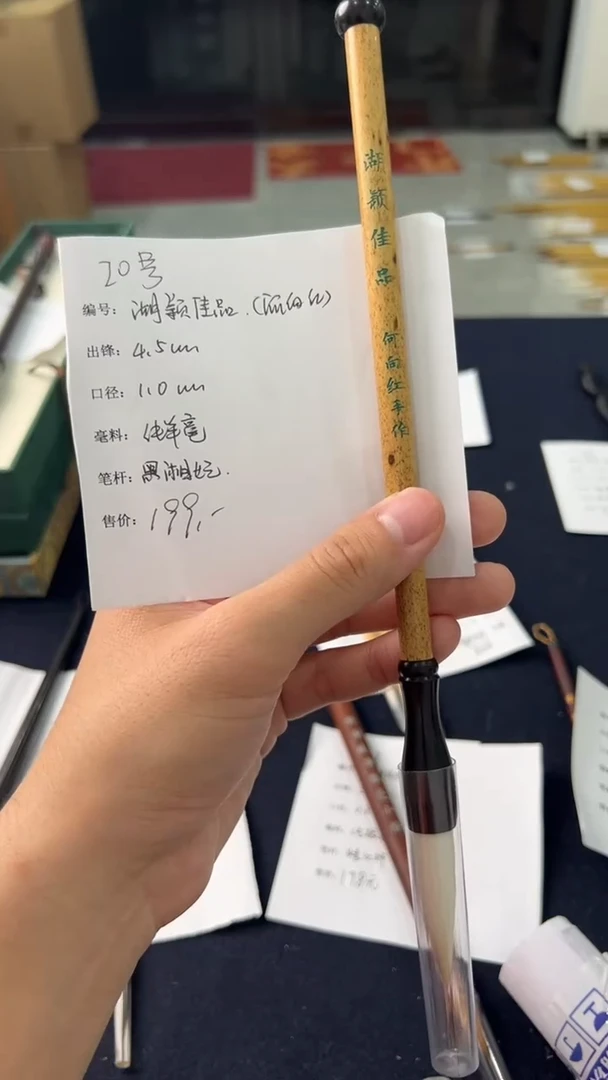 20号
编号: 湖颖佳品.
出锋: 4.5cm
口径: 1.0cm
毫料: 纯羊毫
笔杆: 黑湘妃.
售价: 199.-
湖颖佳品 何向红手作
198元